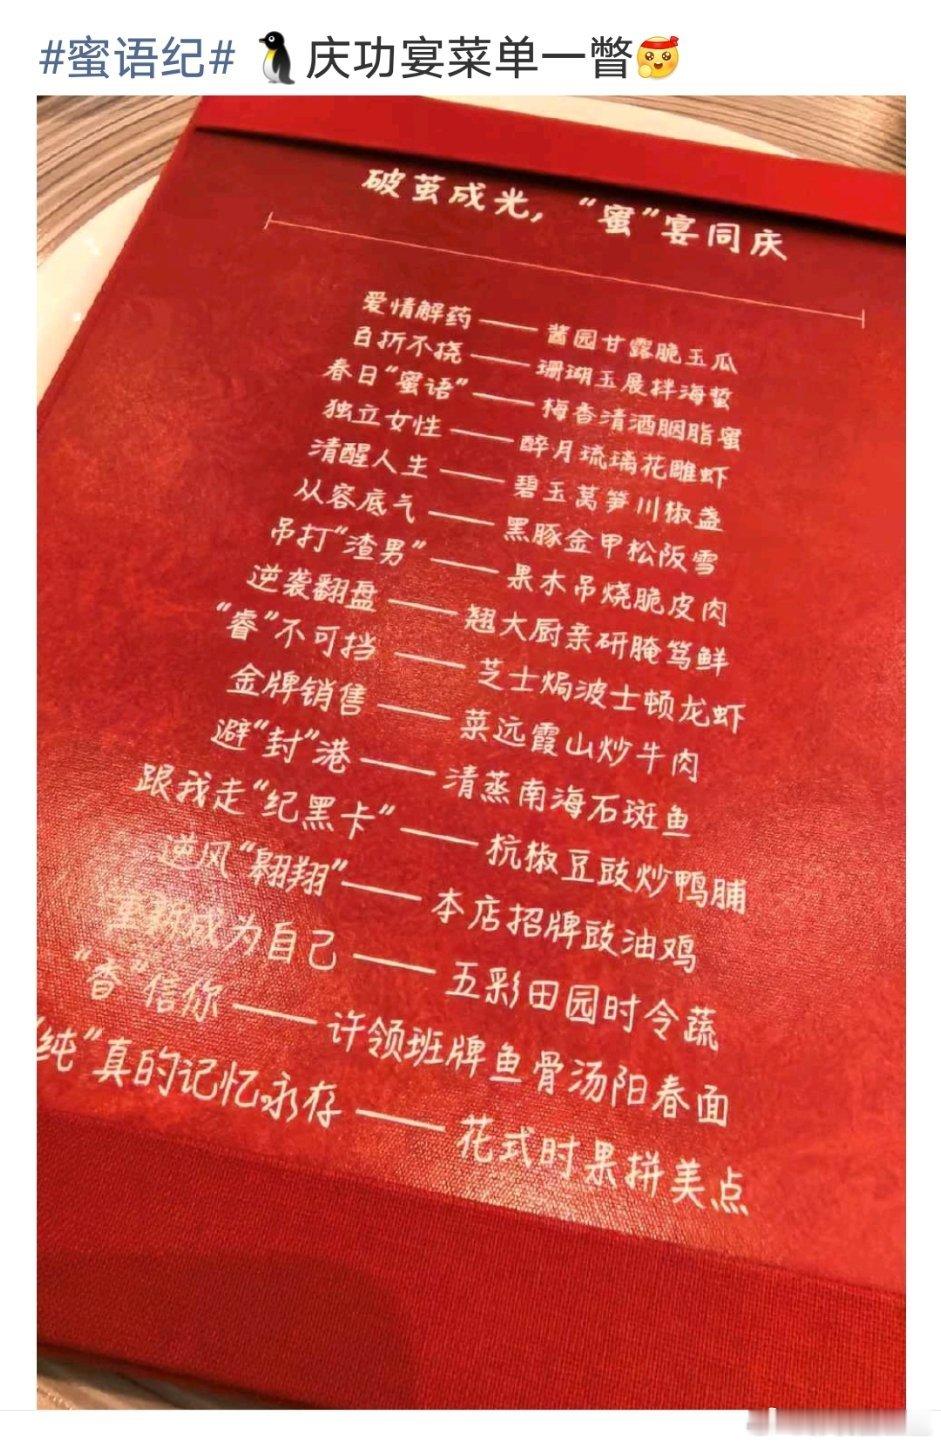 #蜜语纪# 🐧庆功宴菜单一瞥🥳
破茧成光，“蜜”宴同庆
爱情解药——酱园甘露脆玉瓜
百折不挠——珊瑚玉展拌海蜇
春日“蜜语”——梅香清酒胭脂蜜
独立女性——醉月琉璃花雕虾
清醒人生——碧玉莴笋川椒盏
从容底气——黑豚金甲松阪雪
吊打“渣男”——果木吊烧脆皮肉
逆袭翻盘——翘大厨亲研腌笃鲜
“睿”不可挡——芝士焗波士顿龙虾
金牌销售——菜远霞山炒牛肉
避“封”港——清蒸南海石斑鱼
跟我走“纪黑卡”——杭椒豆豉炒鸭脯
逆风“翱翔”——本店招牌豉油鸡
重新成为自己——五彩田园时令蔬
“香”信你——许领班牌鱼骨汤阳春面
“纯”真的记忆永存——花式时果拼美点